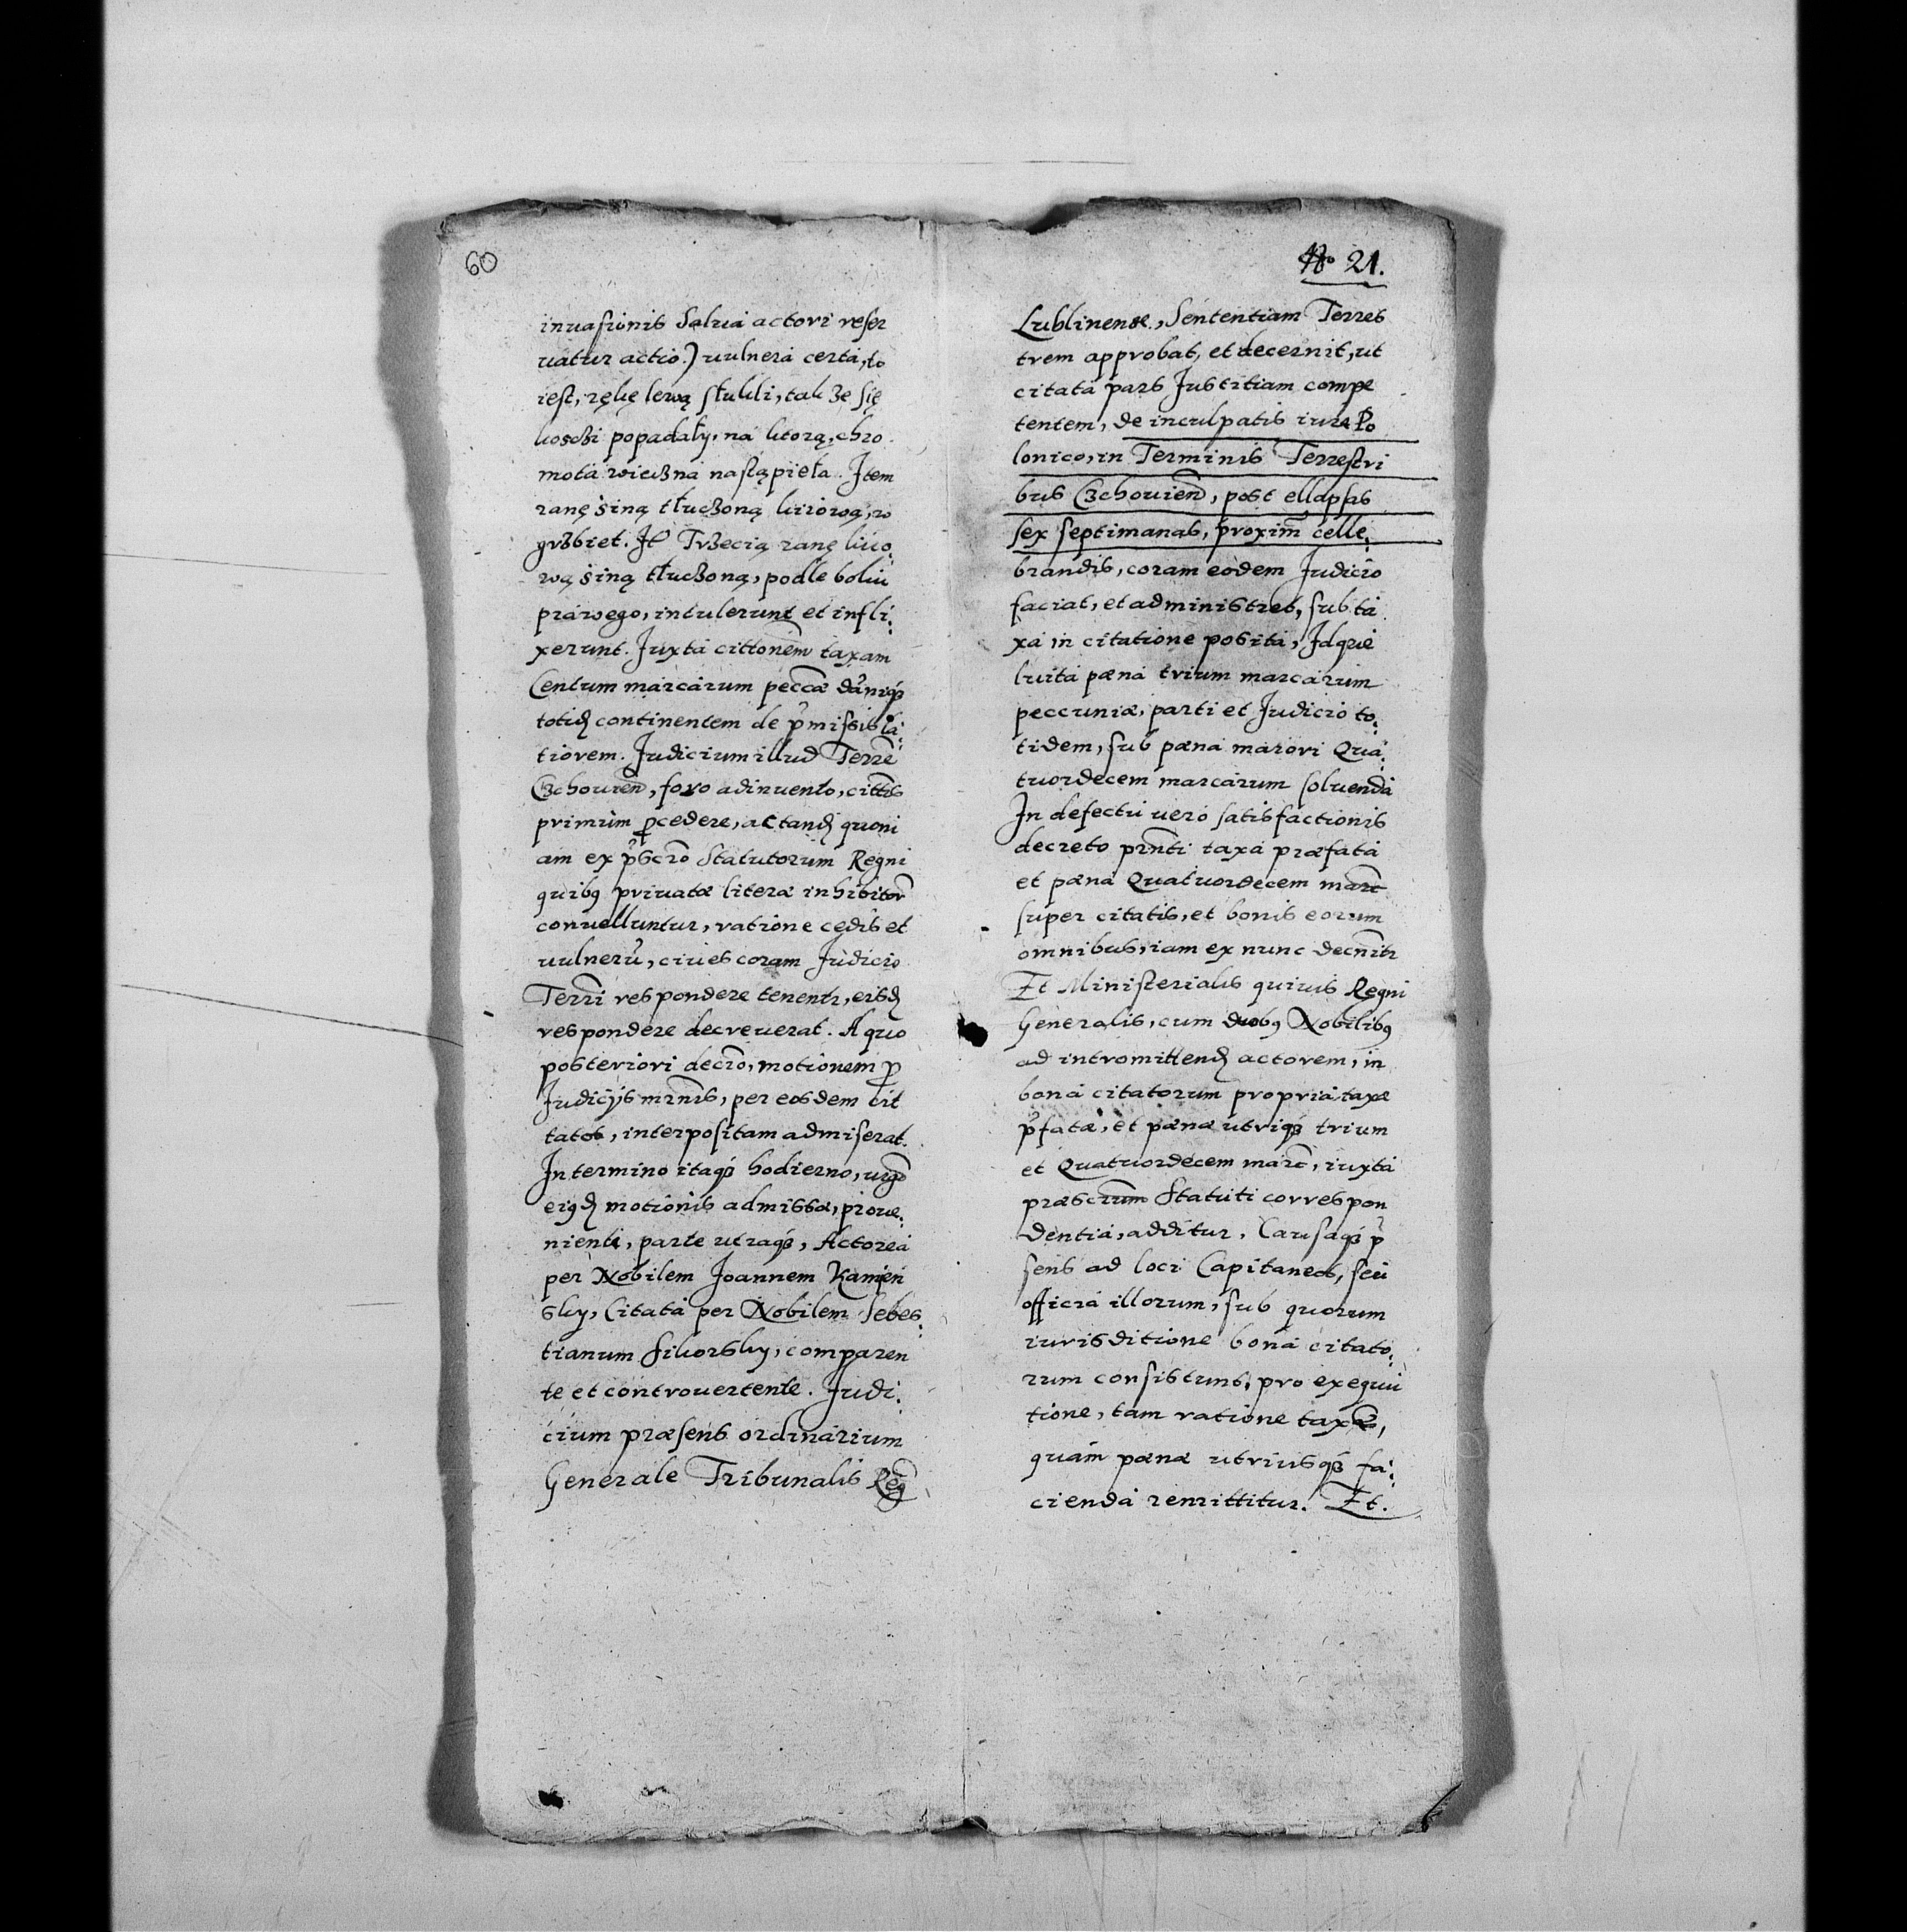 60
inuasionis Salua actori reser
uatur actio.) uulnera certa, to
iest, rękę lewą stukli, tak że się
koscżi popadały, na ktorą, chro
mota wieczna nastąpieła. Item
ranę siną tłuczoną kriową, w
grzbiet. Itē Trzecią ranę krio
wą siną tłuczoną, podle boku
prawego, intulerunt et infli:
xerunt. Iuxta cittonem taxam
Centum marcarum peccæ daniqȝ
totid continentem de pmissis la:
tiorem. Judicium illud Terre
Czchouien, foro adinuento, cittis
primum pcedere, ac tand quoni
am ex pscro Statutorum Regni
quibq priuatæ literæ inhibitor
conuelluntur, ratione cędis et
uulneru, ciues coram Judicio
Terri respondere tenentr, eisd
respondere decreuerat. A quo
posteriori decro, motionem p
Judicijs mrnis, per eosdem cit
tatos, interpositam admiserat.
In termino itaqȝ hodierno, uigo
eiqd motionis admissæ, proue:
nienti, parte utraqȝ, Actorea
per Nobilem Joannem Kamien
sky, Citata per Nobilem Sebes:
tianum Sikorsky, comparen
te et controuertente. Judi:
cium præsens ordinarium
Generale Tribunalis Reg
No 21.
Lublinense, Sententiam Terres
trem approbat, et decernit, ut
citata pars Justitiam compe
tentem, de inculpatis iure Po
lonico, in Terminis Terrestri
bus Czchouien, post ellapsas
sex septimanas, proxim celle:
brandis, coram eodem Judicio
faciat, et administret, sub ta
xa in citatione posita, Idque
luita pæna trium marcarum
peccuniæ, parti et Judicio to:
tidem, sub pæna maiori Qua:
tuordecem marcarum soluenda
In defectu uero satisfactionis
decreto prnti taxa præfata
et pæna Quatuordecem marc
super citatis, et bonis eorum
omnibus, iam ex nunc decnitr
Et Ministerialis quiuis Regni
Generalis, cum duobq Nobilibq
ad intromittend actorem, in
bona citatorum propria, taxæ
pfatæ, et pænæ utriqȝ trium
et Quatuordecem marc, iuxta
præscrum Statuti correspon
dentia, additur. Causaqȝ p
sens ad loci Capitaneos, seu
officia illorum, sub quorum
iurisditione bona citato:
rum consistunt, pro exequu
tione, tam ratione taxæ,
quam pænæ utriusqȝ fa:
cienda remittitur. Et.